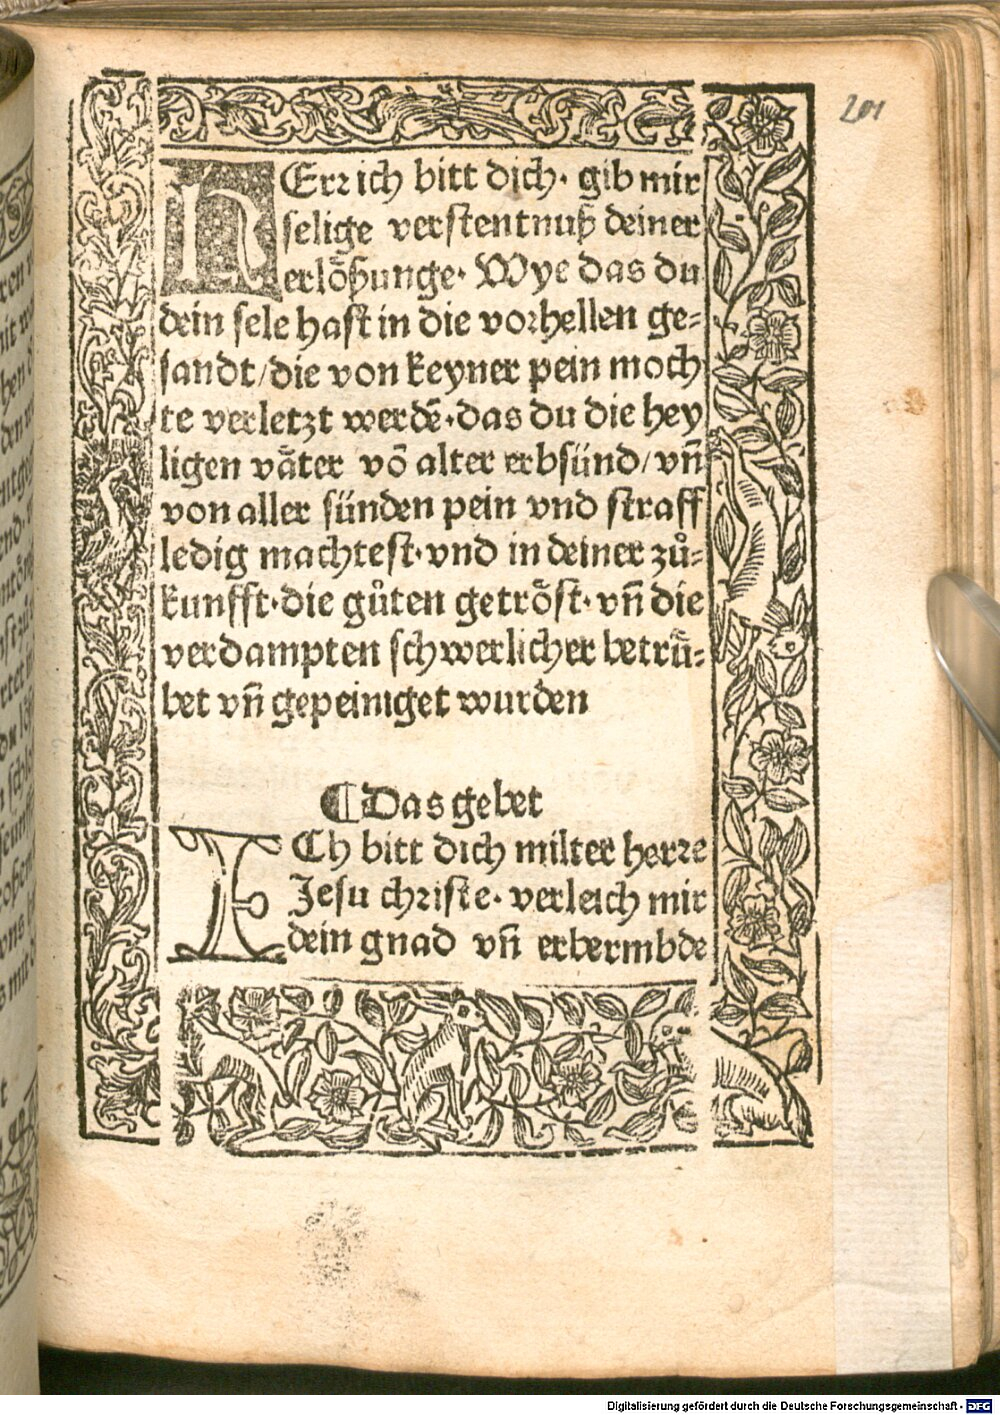 201
HErꝛ ich bitt dich· gib mir
selige verstentnuß deiner
erloͤßunge· Wye das du
dein sele hast in die voꝛhellen ge⸗
sandt/die von keyner pein moch
te verletzt werdē·das du die hey
ligen vaͤter võ alter erbsünd/vñ
von aller sünden pein vnd straff
ledig machtest·vnd in deiner zuͦ⸗
kunfft·die guͦten getroͤst·vñ die
verdampten schwerlicher betruͤ⸗
bet vñ gepeiniget wurden
¶Das gebet
ICh bitt dich milter herꝛe
Jesu chꝛiste· verleich mir
dein gnad vñ erbermbde
Digitalisierung gefördert durch die Deutsche Forschungsgemeinschaft - DFG